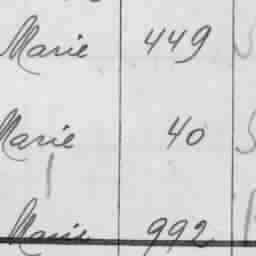 Marie 449
Marie 40
Marie 992